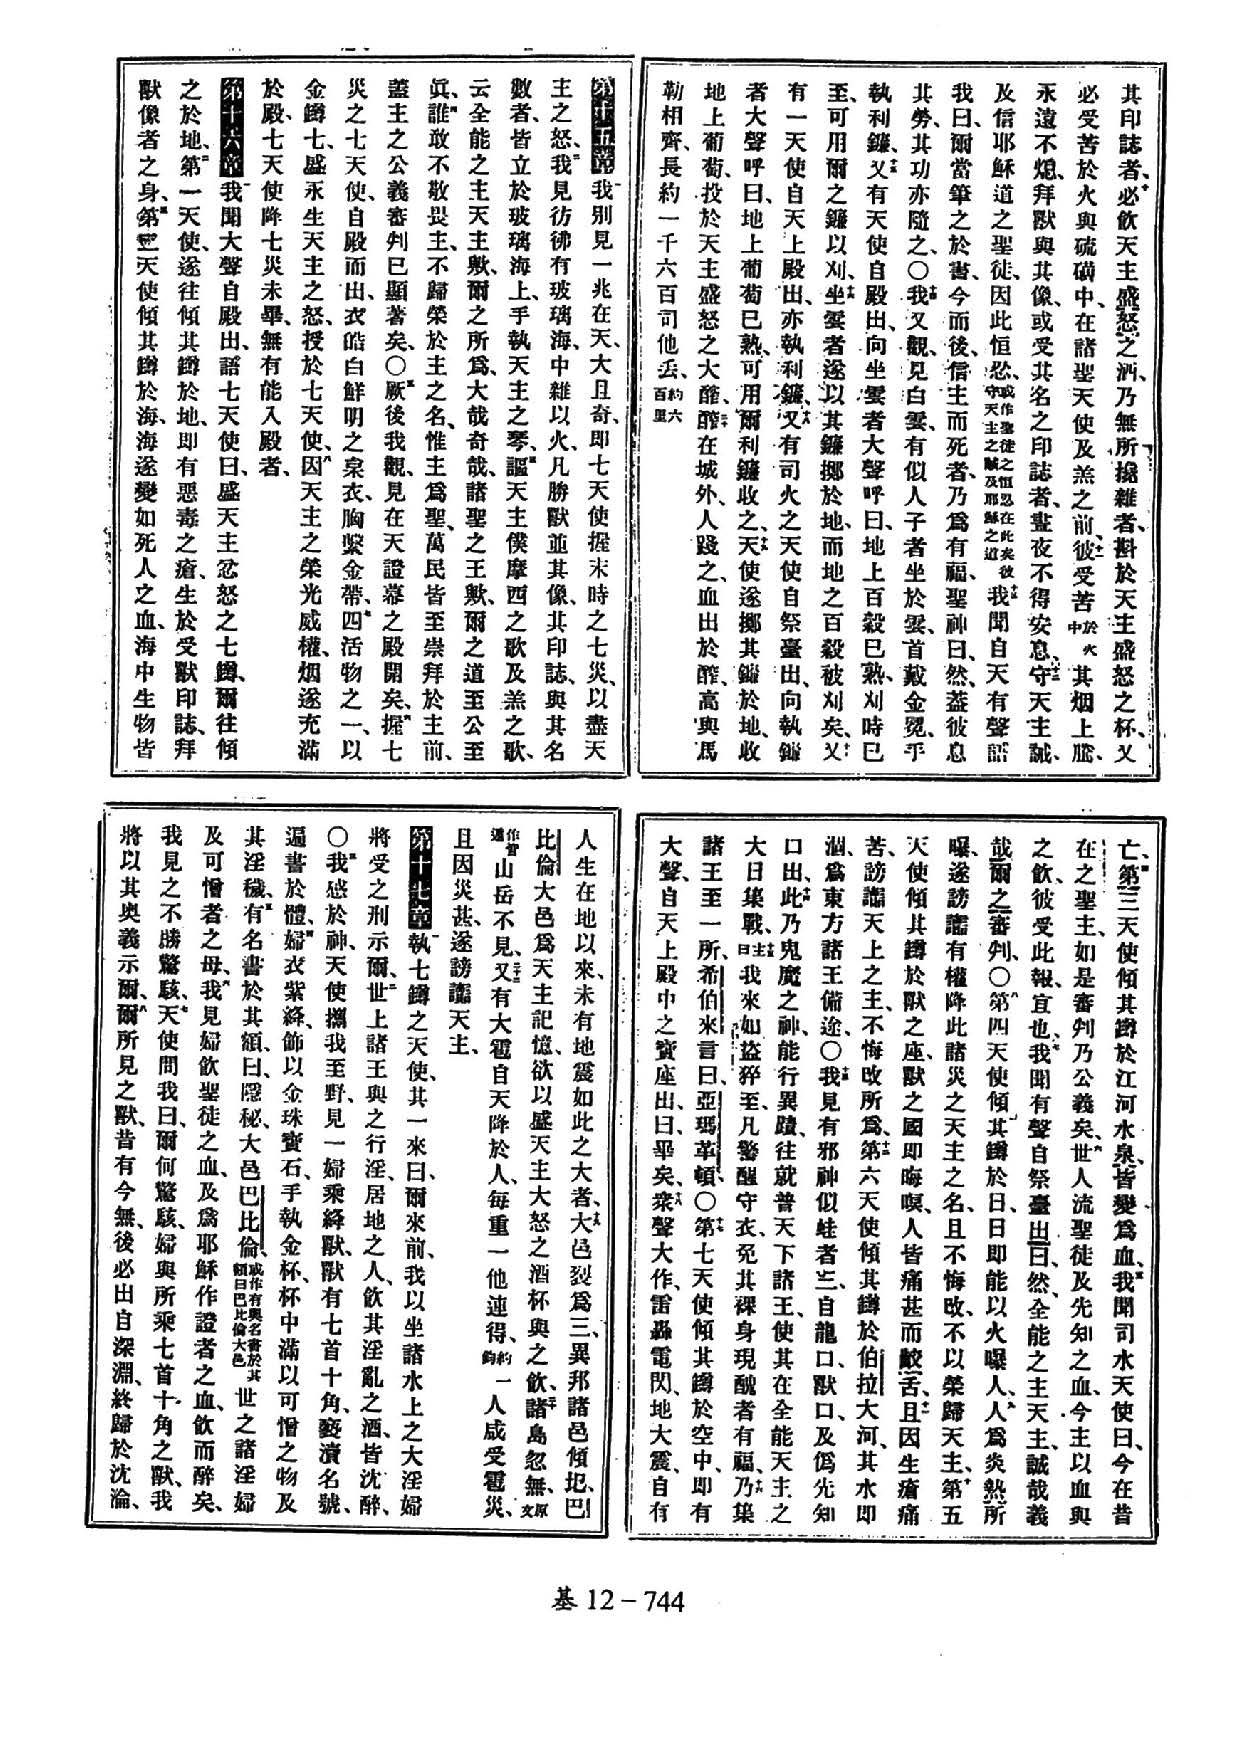 其印誌者、必飲天主盛怒之酒、乃無所攙雜者、斟於天主盛怒之杯、又
必受苦於火與硫磺中、在諸聖天使及羔之前、彼受苦於火中其烟上騰、
永遠不熄、拜獸與其像、或受其名之印誌者、晝夜不得安息、守天主誡、
及信耶穌道之聖徒、因此恒忍、或作聖徒之恒忍在此矣彼守天主之誡及耶穌之道我聞自天有聲語
我曰、爾當筆之於書、今而後、信主而死者、乃爲有福、聖神曰、然、蓋彼息
其勞、其功亦隨之、〇我又觀、見白雲、有似人子者坐於雲、首戴金冕、手
執利鐮、又有天使自殿出、向坐雲者大聲呼曰、地上百穀已熟、刈時已
至、可用爾之鐮以刈、坐雲者遂以其鐮擲於地、而地之百穀被刈矣、又
有一天使自天上殿出、亦執利鐮、又有司火之天使自祭臺出、向執鐮
者大聲呼曰、地上葡萄已熟、可用爾利鐮收之、天使遂擲其鐮於地、收
地上葡萄、投於天主盛怒之大醡、醡在城外、人踐之、血出於醡、高與馬
勒相齊、長約一千六百司他丟、約六百里
第十五章我別見一兆在天、大且奇、即七天使握末時之七災、以盡天
主之怒、我見彷彿有玻璃海、中雜以火、凡勝獸並其像、其印誌、與其名
數者、皆立於玻璃海上、手執天主之琴、謳天主僕摩西之歌及羔之歌、
云全能之主天主歟、爾之所爲、大哉奇哉、諸聖之王歟、爾之道至公至
眞、誰敢不敬畏主、不歸榮於主之名、惟主爲聖、萬民皆至崇拜於主前、
蓋主之公義審判已顯著矣、〇厥後我觀、見在天證幕之殿開矣、握七
災之七天使、自殿而出、衣皓白鮮明之枲衣、胸繫金帶、四活物之一、以
金鐏七、盛永生天主之怒、授於七天使、因天主之榮光威權、烟遂充滿
於殿、七天使降七災未畢、無有能入殿者、
第十六章我聞大聲自殿出、語七天使曰、盛天主忿怒之七鐏、爾往傾
之於地、第一天使、遂往傾其鐏於地、即有惡毒之瘡、生於受獸印誌、拜
獸像者之身、第二天使傾其鐏於海、海遂變如死人之血、海中生物皆
亡、第三天使傾其鐏於江河水泉、皆變爲血、我聞司水天使曰、今在昔
在之聖主、如是審判乃公義矣、世人流聖徒及先知之血、今主以血與
之飲、彼受此報、宜也、我聞有聲自祭臺出曰、然、全能之主天主、誠哉義
哉、爾之審判、〇第四天使傾其鐏於日、日即能以火曝人、人爲炎熱所
曝、遂謗讟有權降此諸災之天主之名、且不悔改、不以榮歸天主、第五
天使傾其鐏於獸之座、獸之國即晦暝、人皆痛甚而齩舌、且因生瘡痛
苦、謗讟天上之主、不悔改所爲、第六天使傾其鐏於伯拉大河、其水即
涸、爲東方諸王備途、〇我見有邪神似蛙者三、自龍口、獸口、及僞先知
口出、此乃鬼魔之神、能行異蹟、往就普天下諸王、使其在全能天主之
大日集戰、主曰我來如盜猝至、凡警醒守衣、免其裸身現醜者有福、乃集
諸王至一所、希伯來言曰、亞瑪革頓、〇第七天使傾其鐏於空中、即有
大聲、自天上殿中之寶座出、曰、畢矣、衆聲大作、雷轟電閃、地大震、自有
人生在地以來、未有地震如此之大者、大邑裂爲三、異邦諸邑傾圯、巴
比倫大邑爲天主記憶、欲以盛天主大怒之酒杯與之飲、諸島忽無、原文
作皆遁山岳不見、又有大雹自天降於人、每重一他連得、約鈞人咸受雹災、
且因災甚、遂謗讟天主、
第十七章執七鐏之天使、其一來曰、爾來前、我以坐諸水上之大淫婦
將受之刑示爾、世上諸王與之行淫、居地之人、飲其淫亂之酒、皆沈醉、
〇我感於神、天使攜我至野、見一婦乘絳獸、獸有七首十角、褻瀆名號、
遍書於體、婦衣紫絳、飾以金珠寶石、手執金杯、杯中滿以可憎之物及
其淫穢、有名書於其額、曰、隱秘、大邑巴比倫、或作有奧名書於其額曰巴比倫大邑世之諸淫婦
及可憎者之母、我見婦飲聖徒之血、及爲耶穌作證者之血、飲而醉矣、
我見之不勝驚駭、天使問我曰、爾何驚駭、婦與所乘七首十角之獸、我
將以其奧義示爾、爾所見之獸、昔有今無、後必出自深淵、終歸於沈淪、
基12－744